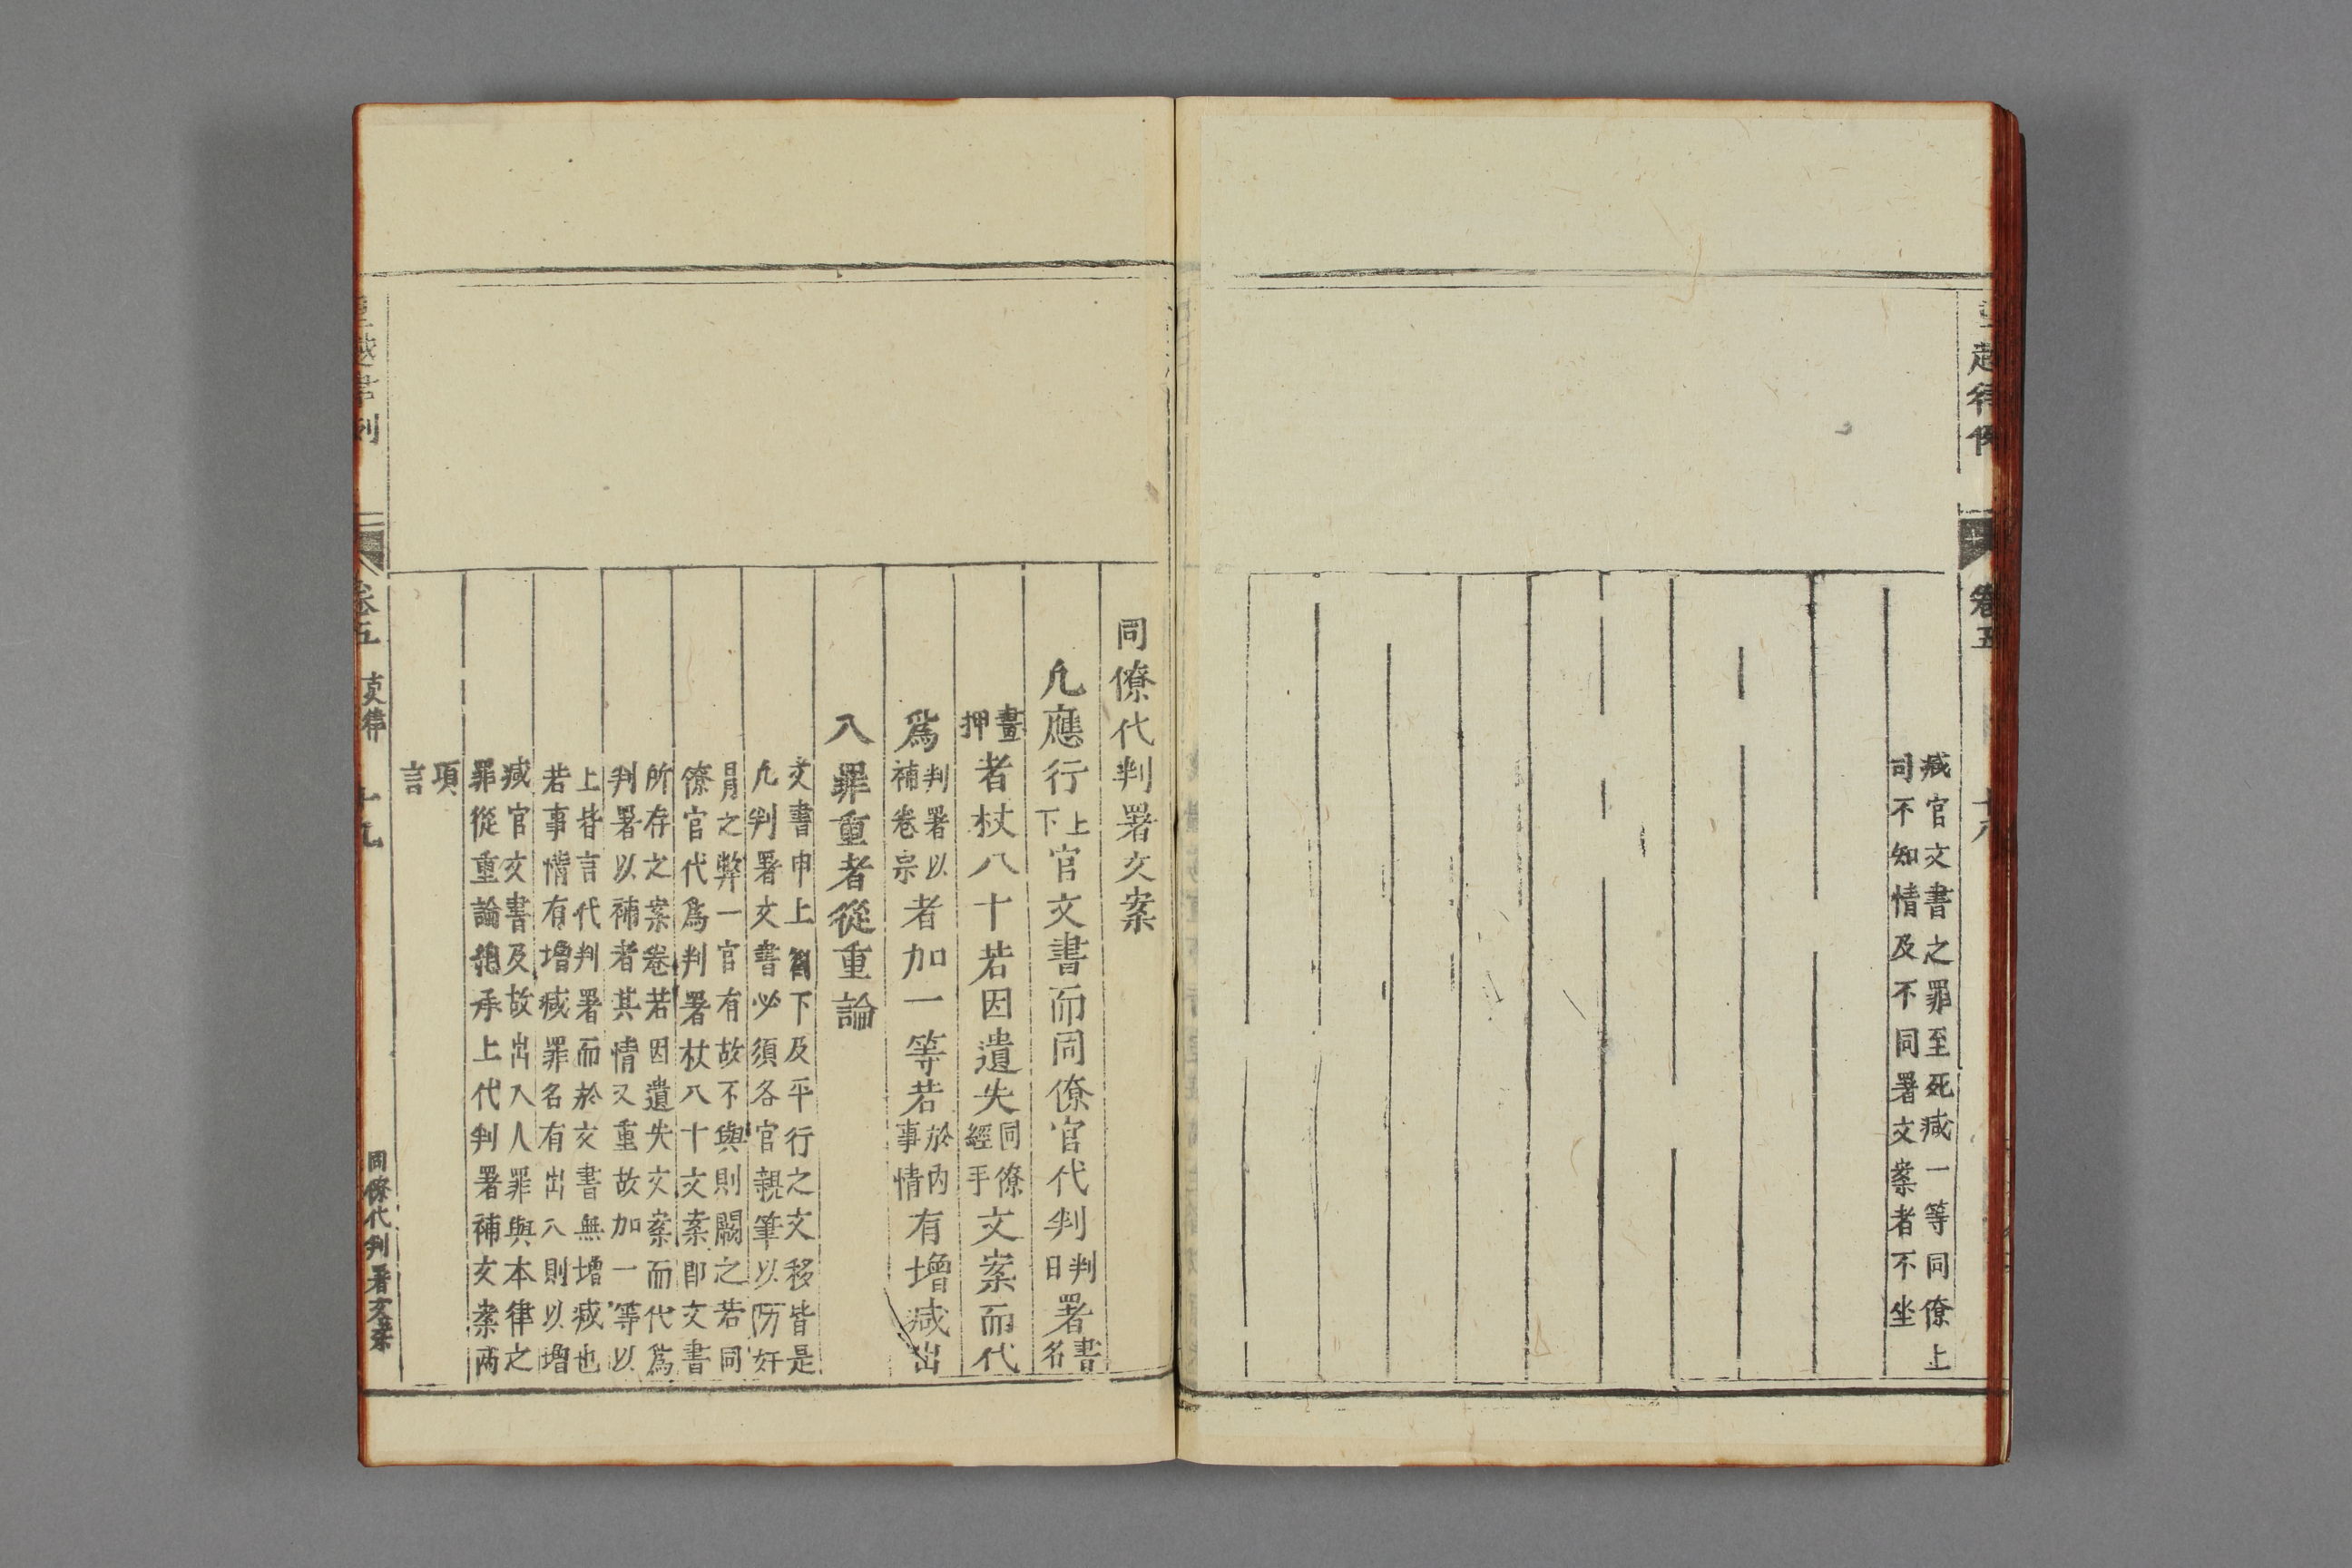 卷五
減官文書之罪至死減一等同僚上
司不知情及不同署文案者不坐
同僚代判署文案
凢應行上下官文書而同僚官代判判日署書名
畫押者杖八十若因遺失同僚經手文案而代
爲判署以補卷宗者加一等若於內事情有增减出
入罪重者從重論
文書申上劄下及平行之文移皆是
凢判署文書必須各官親筆以防奸
冐之弊一官有故不與則闕之若同
僚官代爲判署杖八十文案卽文書
所存之案卷若因遺失文案而代爲
判署以補者其情又重故加一等以
上皆言代判署而於文書無增减也
若事情有增减罪名有出入則以增
减官文書及故出入人罪與本律之
罪從重論總承上代判署補文案兩
項
言
卷五
吏律
十九
同僚代判署文案